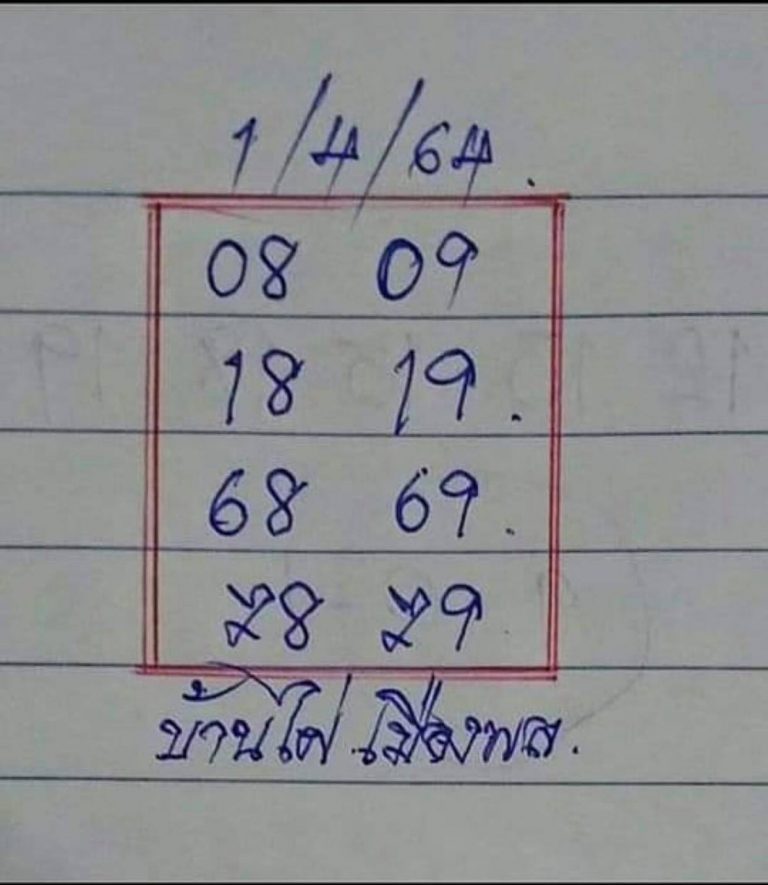 1/4/64.
08 09
18 19.
68 69.
78 79
บ้านไผ่.เมืองพล.